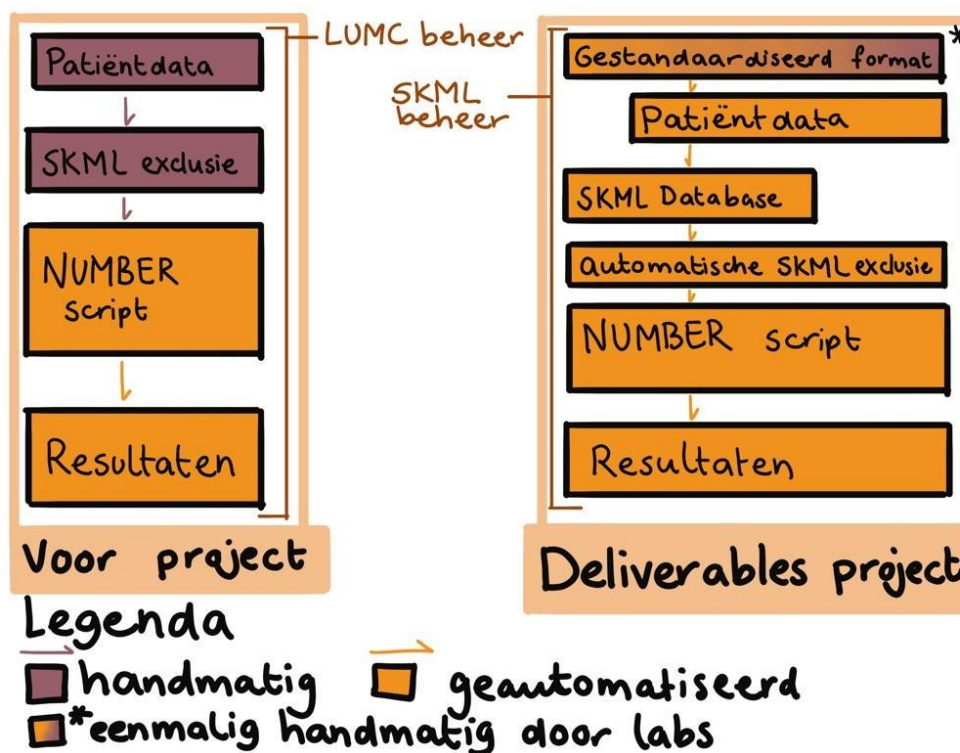 Patiëntdata
SKML exclusie
NUMBER
script
Resultaten
Voor project
LUMC beheer
SKML
beheer
Gestandaardiseerd format*
Patiëntdata
SKML Database
automatische SKML exclusie
NUMBER script
Resultaten
Deliverables project
Legenda
handmatig geautomatiseerd
*eenmalig handmatig door labs